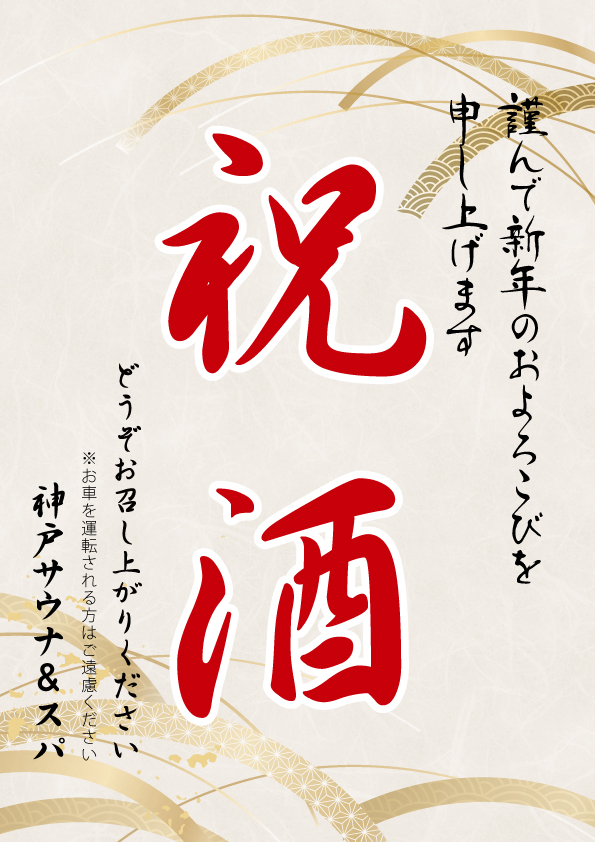 謹んで新年のおよろこびを
申し上げます
祝酒
どうぞお召し上がりください
※お車を運転される方はご遠慮ください
神戸サウナ&スパ